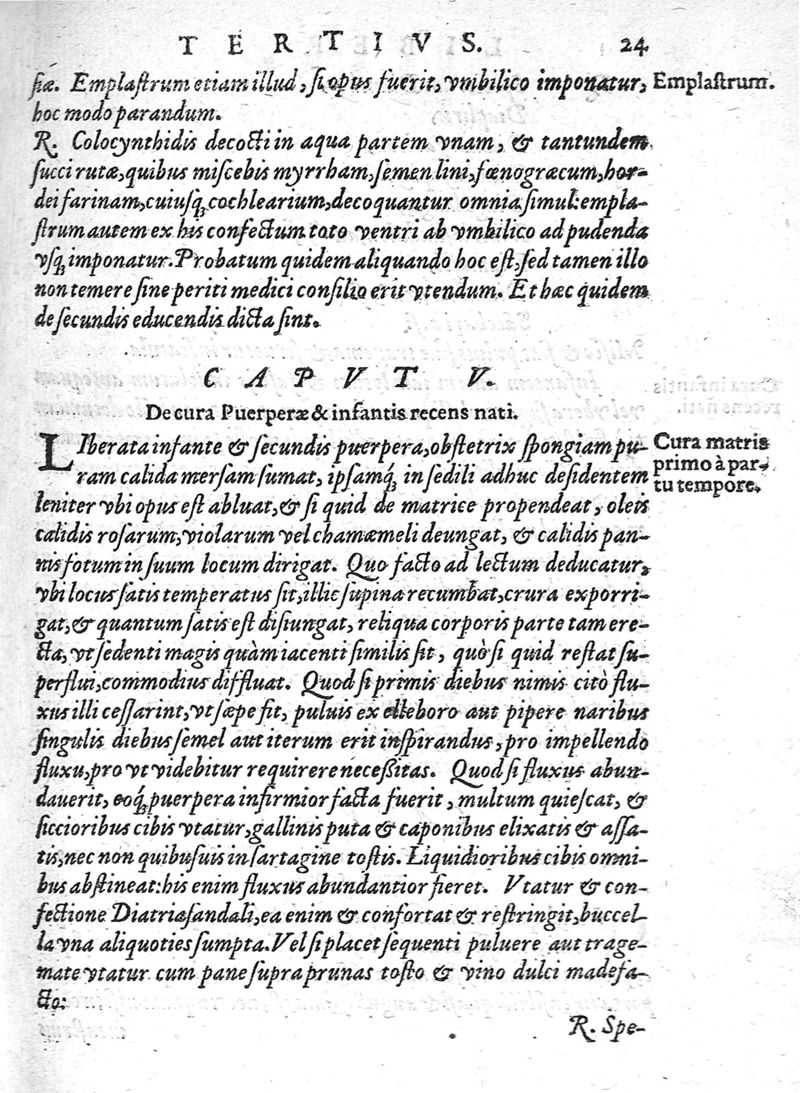 TERTIVS. 24
ſiæ. Emplaſtrum etiam illud, ſi opus fuerit, vmbilico imponatur, Emplaſtrum.
hoc modo parandum.
R. Colocynthidis decocti in aqua partem vnam, & tantundem
ſucci rutæ, quibus miſcebis myrrham, ſemen lini, fœnogræcum, hor-
dei farinam, cuiuſq́ cochlearium, decoquantur omnia ſimul: empla-
ſtrum autem ex his confectum toto ventri ab vmbilico ad pudenda
vſq́ imponatur. Probatum quidem aliquando hoc eſt, ſed tamen illo
non temere ſine periti medici conſilio erit vtendum. Et hæc quidem
de ſecundis educendis dicta ſint.
CAPVT V.
De cura Puerperæ & infantis recens nati.
LIberata infante & ſecundis puerpera, obſtetrix ſpongiam pu- Cura matris
ram calida merſam ſumat, ipſamq́ in ſedili adhuc deſidentem primo à par-
leniter vbi opus eſt abluat, & ſi quid de matrice propendeat, oleis tu tempore.
calidis roſarum, violarum vel chamæmeli deungat, & calidis pan-
nis fotum in ſuum locum dirigat. Quo facto ad lectum deducatur,
vbi locus ſatis temperatus ſit, illic ſupina recumbat, crura exporri-
gat, & quantum ſatis eſt diſiungat, reliqua corporis parte tam ere-
cta, vt ſedenti magis quàm iacenti ſimilis ſit, quò ſi quid reſtat ſu-
perflui, commodius diffluat. Quod ſi primis diebus nimis citò flu-
xus illi ceſſarint, vt ſæpe fit, puluis ex elleboro aut pipere naribus
ſingulis diebus ſemel aut iterum erit inſpirandus, pro impellendo
fluxu, pro vt videbitur requirere neceßitas. Quod ſi fluxus abun-
dauerit, eoq́ puerpera infirmior facta fuerit, multum quieſcat, &
ſiccioribus cibis vtatur, gallinis puta & caponibus elixatis & aſſa-
tis, nec non quibuſuis in ſartagine toſtis. Liquidioribus cibis omni-
bus abſtineat: his enim fluxus abundantior fieret. Vtatur & con-
fectione Diatriaſandali, ea enim & confortat & reſtringit, buccel-
la vna aliquoties ſumpta. Vel ſi placet ſequenti puluere aut trage-
mate vtatur cum pane ſupra prunas toſto & vino dulci madefa-
cto:
R. Spe-